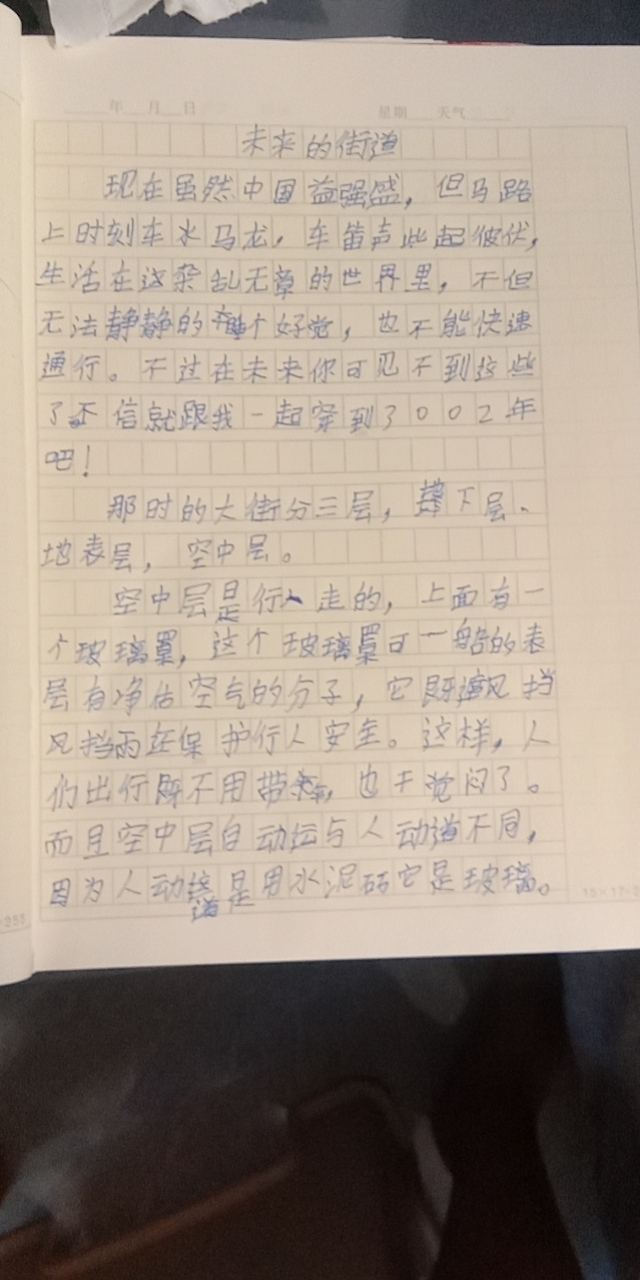 年 月 日 星期 天气
未来的街道
现在虽然中国益强盛，但马路
上时刻车水马龙，车笛声此起彼伏，
生活在这杂乱无章的世界里，不但
无法静静的睡个好觉，也不能快速
通行。不过在未来你可见不到这些
了不信就跟我一起穿到3002年
吧！
那时的大街分三层，下层、
地表层，空中层。
空中层是行人走的，上面有一
个玻璃罩，这个玻璃罩可一般的表
层有净估空气的分子，它既避风挡
风挡雨在保护行人安全。这样，人
们出行既不用带伞，也不觉闷了。
而且空中层自动运与人动道不同，
因为人动道是用水泥砖它是玻璃。